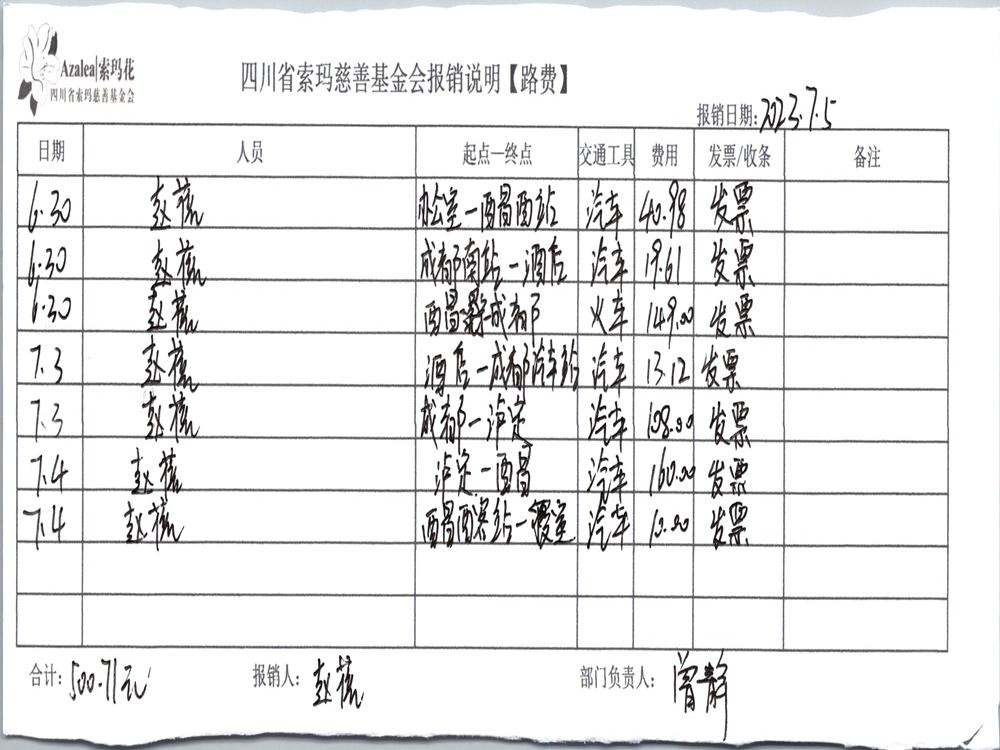 Azalea|索玛花
四川省索玛慈善基金会
四川省索玛慈善基金会报销说明【路费】
报销日期: 2023.7.5
日期 人员 起点—终点 交通工具 费用 发票/收条 备注
6.30 赵 办公室—西昌西站 汽车 40.98 发票
6.30 赵 成都南站—酒店 汽车 19.61 发票
6.30 赵 西昌—成都 火车 149.00 发票
7.3 赵 酒店—成都汽车站 汽车 13.12 发票
7.3 赵 成都—泸定 汽车 108.00 发票
7.4 赵 泸定—西昌 汽车 160.00 发票
7.4 赵 西昌西客站— 室 汽车 10.00 发票
合计: 500.71元 报销人: 赵 部门负责人: 曾静